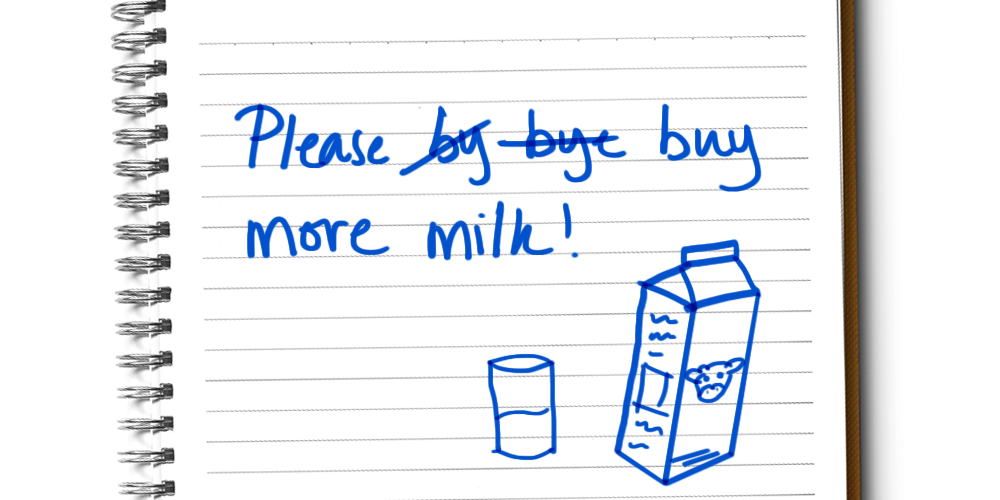 Please by bye buy
more milk!